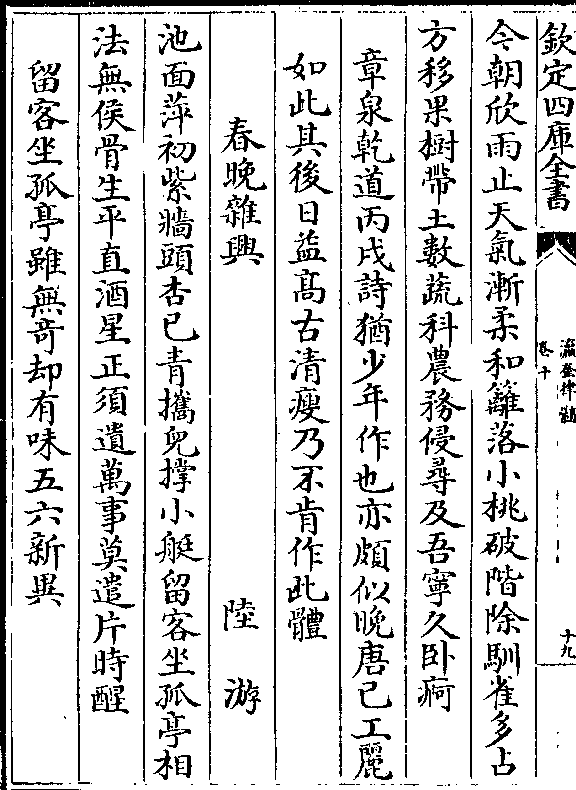 欽定四庫全書
瀛奎律髓
卷十
十九
今朝欣雨止天氣漸柔和籬落小桃破階除馴雀多占
方移果樹帶土數蔬科農務侵尋及吾寧久卧痾
章泉乾道丙戌詩猶少年作也亦頗似晚唐已工麗
如此其後日益髙古清瘦乃不肯作此體
春晚雜興 陸游
池面萍初紫牆頭杏已青攜兒撑小艇留客坐孤亭相
法無侯骨生平直酒星正須遺萬事莫遣片時醒
留客坐孤亭雖無竒却有味五六新異